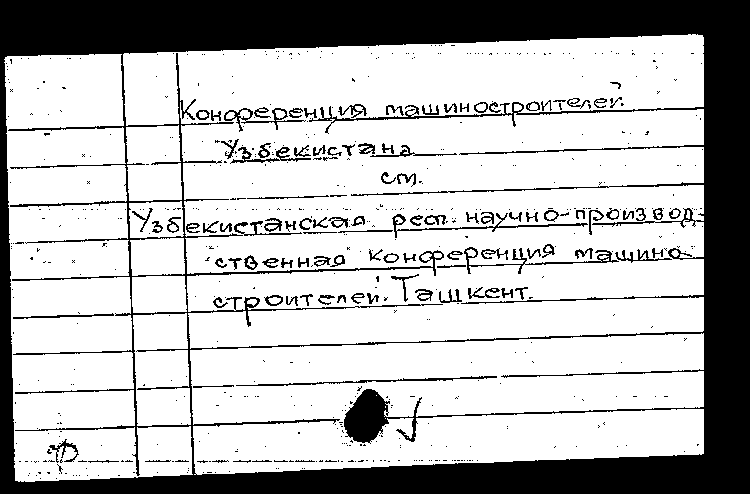 Конференция машиностроителей
Узбекистана
см.
Узбекистанская респ. научно-производ-
ственная конференция машино-
строителей. Ташкент.